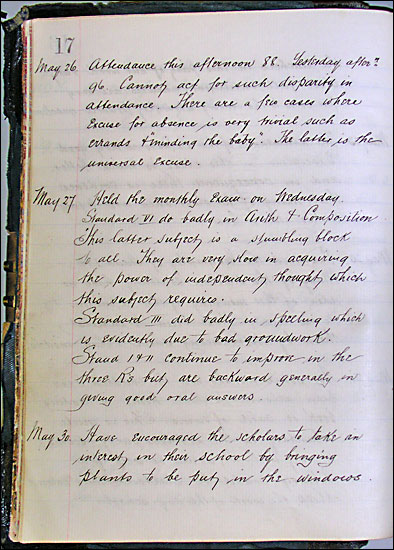 17
May 26. Attendance this afternoon 88. Yesterday aftern
96. Cannot acct for such disparity in
attendance. There are a few cases where
excuse for absence is very trivial such as
errands & "minding the baby". The latter is the
universal excuse.
May 27. Held the monthly Exam. on Wednesday.
Standard VI do badly in Arith & Composition
This latter subject is a stumbling block
to all. They are very slow in acquiring
the power of independent thought which
this subject requires.
Standard III did badly in spelling which
is evidently due to bad groundwork.
Stand I & II continue to improve in the
three R's but are backward generally in
giving good oral answers.
May 30. Have encouraged the scholars to take an
interest in their school by bringing
plants to be put in the windows.